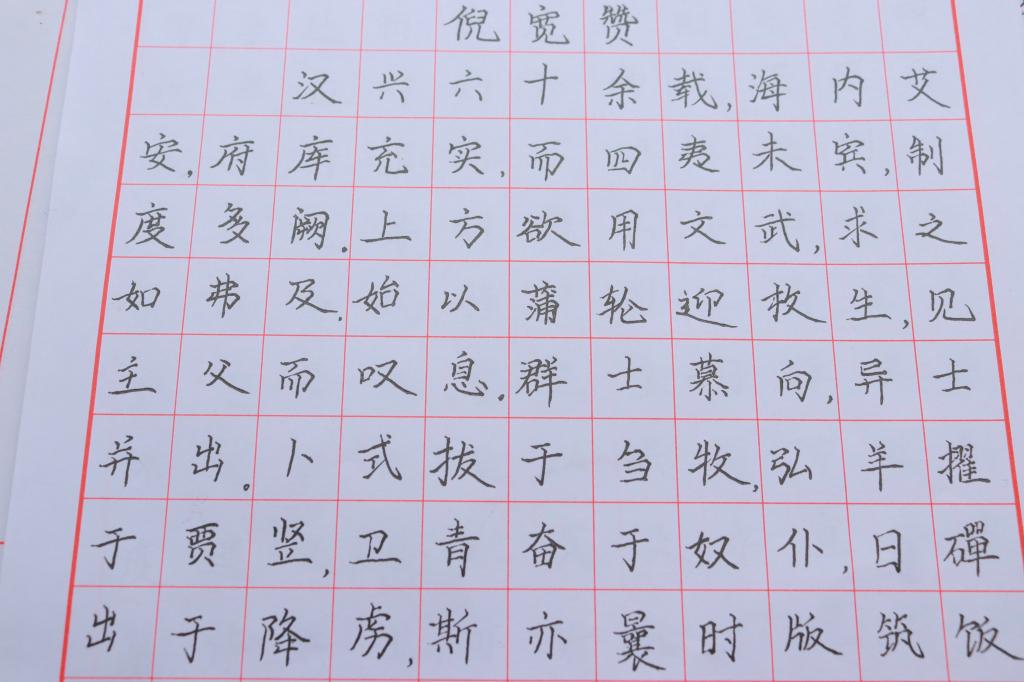 倪宽赞
汉兴六十余载,海内艾
安,府库充实,而四夷未宾,制
度多阙.上方欲用文武,求之
如弗及.始以蒲轮迎枚生,见
主父而叹息.群士慕向,异士
并出.卜式拔于刍牧,弘羊擢
于贾竖,卫青奋于奴仆,日磾
出于降虏,斯亦曩时版筑饭